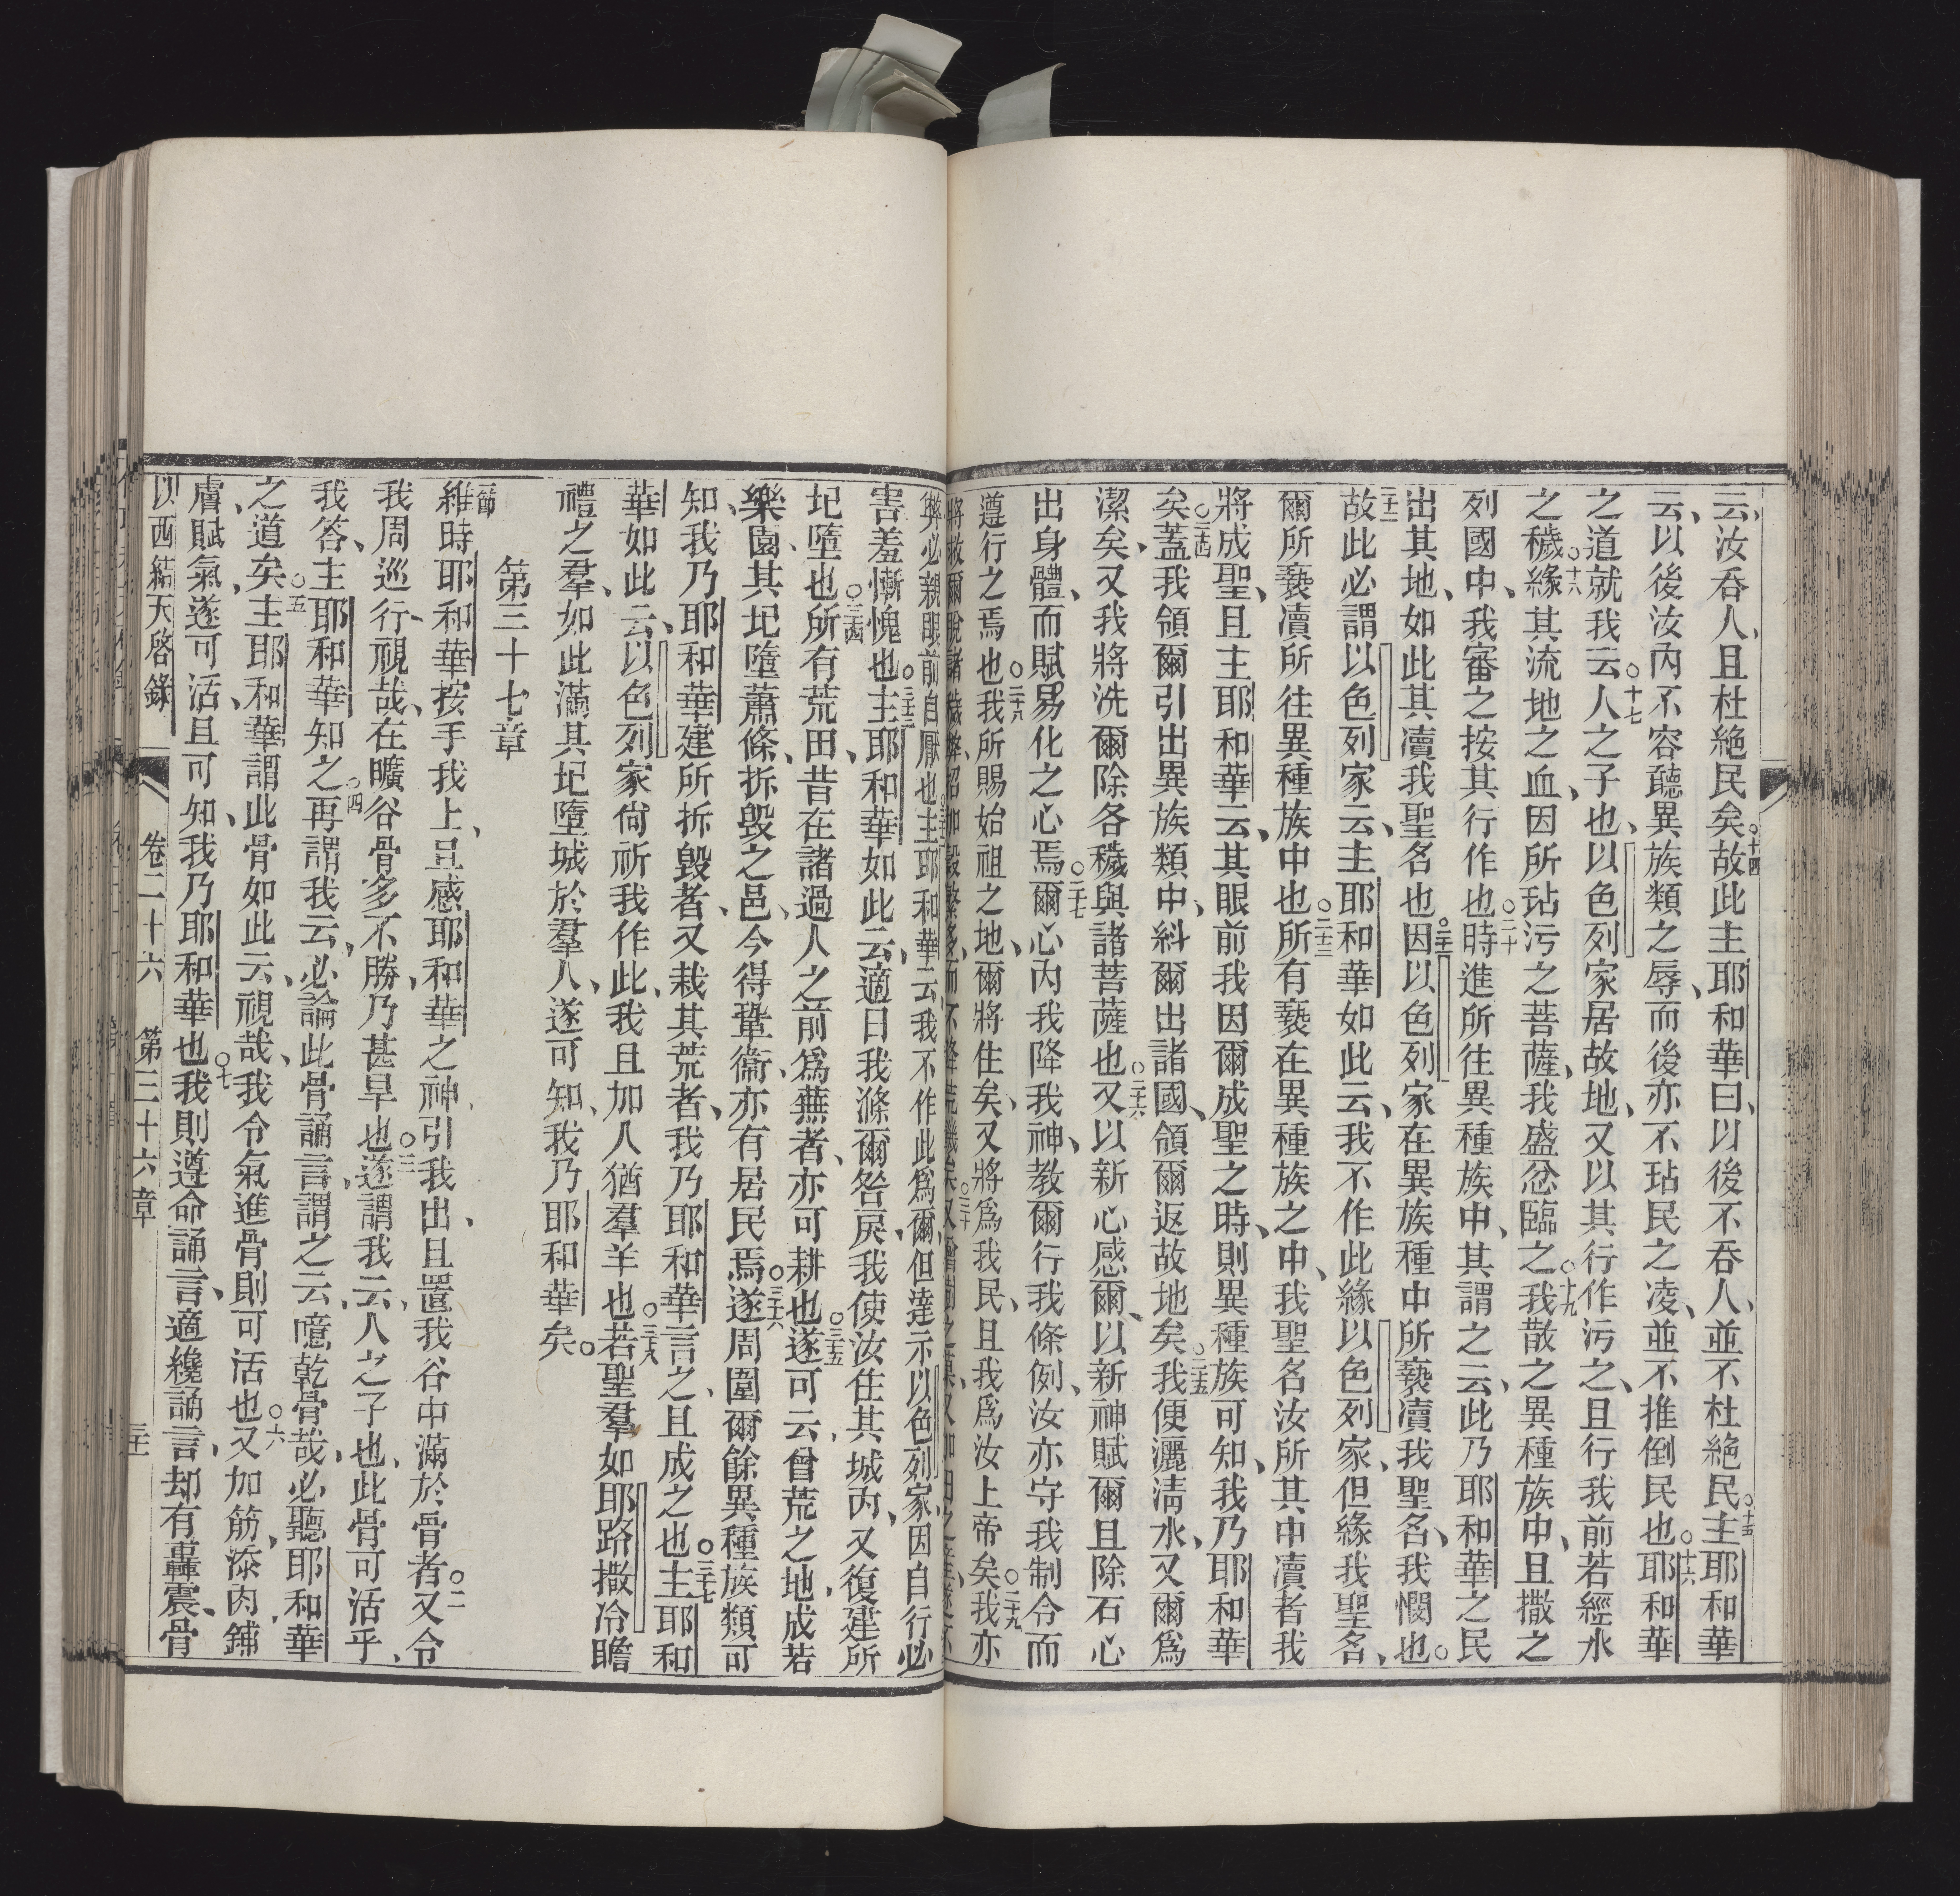 云、汝吞人、且杜絶民矣○十四故此主耶和華曰、以後不吞人、並不杜絶民○十五主耶和華
云、以後汝內不容聽異族類之辱、而後亦不玷民之凌、並不推倒民也○十六耶和華
之道就我云○十七人之子也、以色列家居故地、又以其行作污之、且行我前若經水
之穢○十八緣其流地之血、因所玷污之菩薩、我盛忿臨之○十九我散之異種族中、且撒之
列國中、我審之按其行作也○二十時進所往異種族中、其謂之云、此乃耶和華之民
出其地、如此其凟我聖名也○二十一因以色列家在異族種中所褻凟我聖名、我憫也○
二十二故此必謂以色列家云、主耶和華如此云、我不作此緣以色列家、但緣我聖名、
爾所褻凟所往異種族中也○二十三所有褻在異種族之中、我聖名汝所其中凟者我
將成聖、且主耶和華云、其眼前我因爾成聖之時、則異種族可知、我乃耶和華
矣○二十四蓋我領爾引出異族類中、糾爾出諸國、領爾返故地矣○二十五我便灑淸水、又爾爲
潔矣、又我將洗爾除各穢與諸菩薩也○二十六又以新心感爾、以新神賦爾、且除石心
出身體、而賦易化之心焉○二十七爾心內我降我神、教爾行我條例、汝亦守我制令而
遵行之焉也○二十八我所賜始祖之地、爾將住矣、又將爲我民、且我爲汝上帝矣○二十九我亦
將救爾脫諸穢
弊必親眼前自厭也○三十二主耶和華云、我不作此爲爾、但達示以色列家、因自行必
害羞慚愧也○三十三主耶和華如此云、適日我滌爾咎戾、我使汝住其城內、又復建所
圮墮也○三十四所有荒田、昔在諸過人之前爲蕪者、亦可耕也○三十五遂可云、曾荒之地、成若
樂園、其圮墮蕭條、拆毀之邑、今得鞏衞、亦有居民焉○三十六遂周圍爾餘異種族類可
知、我乃耶和華建所拆毀者、又栽其荒者、我乃耶和華言之、且成之也○三十七主耶和
華如此云、以色列家尙祈我作此、我且加人猶羣羊也○三十八若聖羣、如耶路撒冷瞻
禮之羣、如此滿其圮墮城於羣人、遂可知、我乃耶和華矣○
第三十七章
一節維時耶和華按手我上、且感耶和華之神引我出、且置我谷中滿於骨者○二又令
我周巡行、視哉、在曠谷骨多不勝、乃甚旱也○三遂謂我云、人之子也、此骨可活乎、
我答、主耶和華知之○四再謂我云、必論此骨誦言、謂之云、噫乾骨哉、必聽耶和華
之道矣○五主耶和華謂此骨如此云、視哉、我令氣進骨、則可活也○六又加筋、漆肉、鋪
膚、賦氣、遂可活、且可知、我乃耶和華也○七我則遵命誦言、適纔誦言、却有轟震、骨
以西結天啓錄 卷二十六 第三十六章